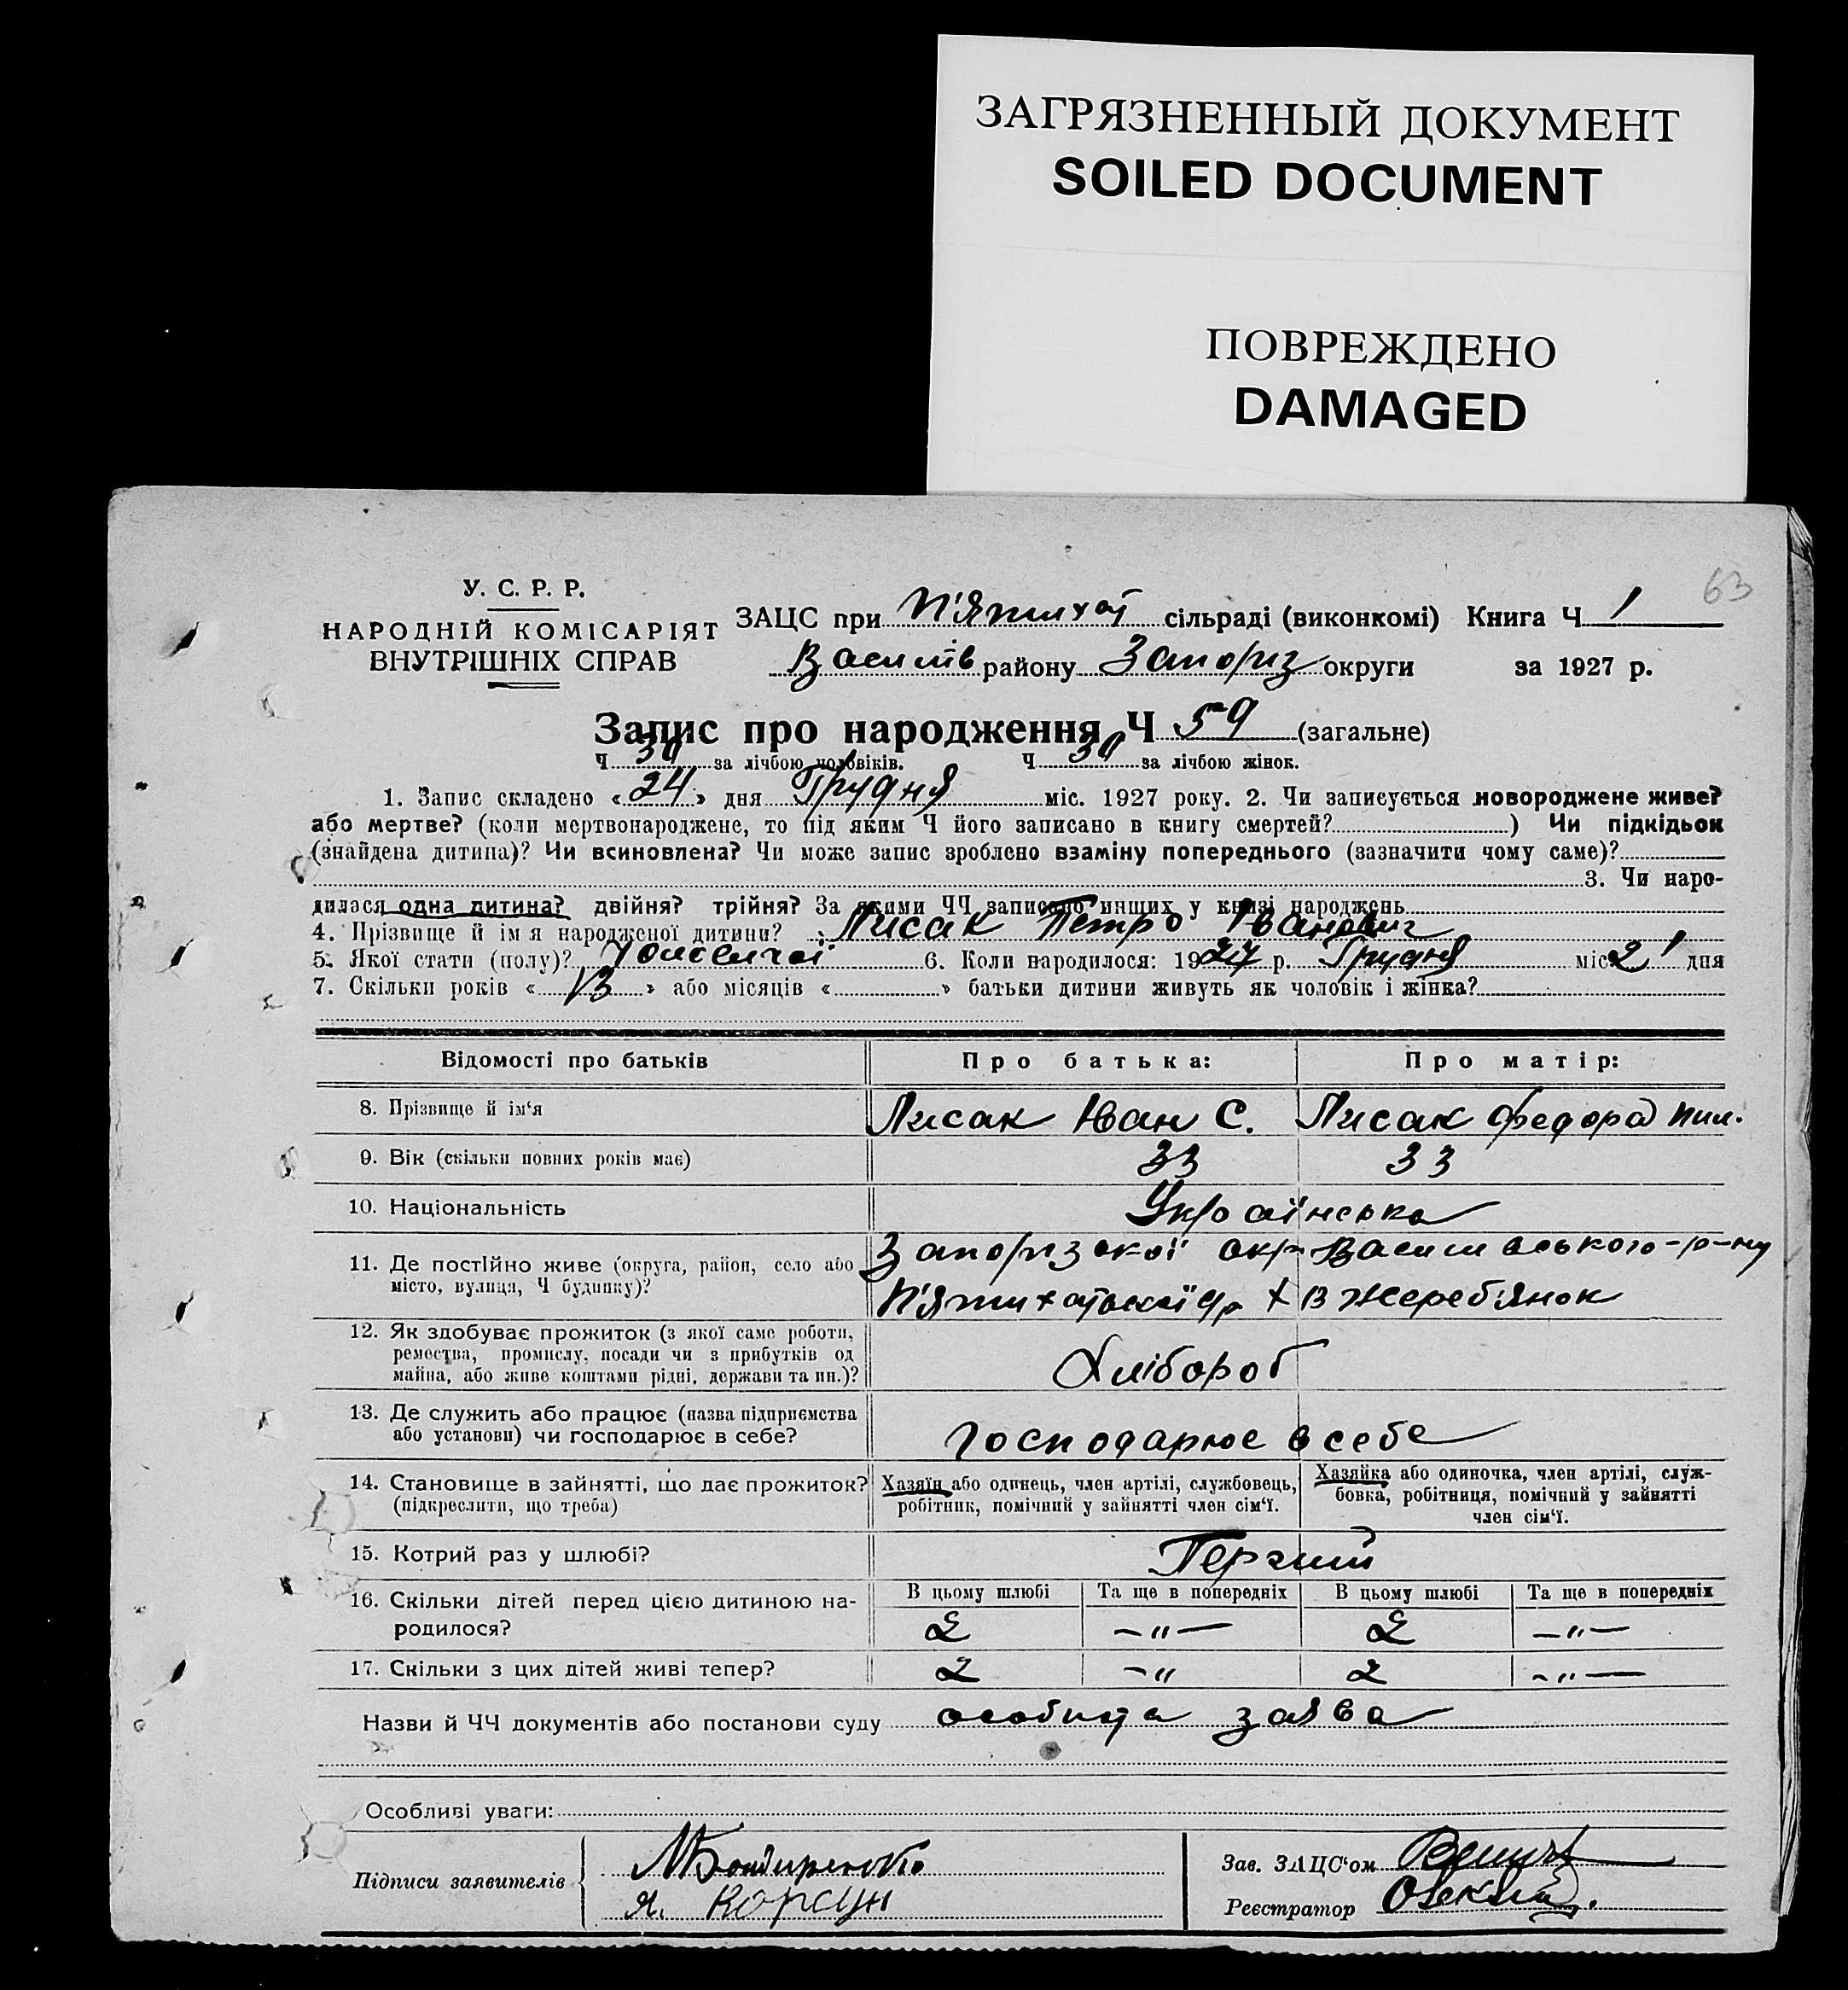 ЗАГРЯЗНЕННЫЙ ДОКУМЕНТ
SOILED DOCUMENT
ПОВРЕЖДЕНО
DAMAGED
63
У. С. Р. Р.
НАРОДНІЙ КОМІСАРІЯТ
ВНУТРІШНІХ СПРАВ
ЗАЦС при П'ятихат сільраді (виконкомі) Книга Ч 1
Василів району Запоріз округи за 1927 р.
Запис про народження Ч 59 (загальне)
Ч 30 за лічбою чоловіків. Ч 30 за лічбою жінок.
1. Запис складено « 24 » дня Грудня міс. 1927 року. 2. Чи записується новороджене живе?
або мертве? (коли мертвонароджене, то під яким Ч його записано в книгу смертей? ) Чи підкідьок
(знайдена дитина)? Чи всиновлена? Чи може запис зроблено взаміну попереднього (зазначити чому саме)?
3. Чи наро-
дилася одна дитина? двійня? трійня? За якими ЧЧ записано инших у книзі народжень
4. Прізвище й ім я народженої дитини? Лисак Петро Іванович
5. Якої стати (полу)? 6. Коли народилося: 1927 р. Грудня міс. 21 дня
7. Скільки років « 13 » або місяців « » батьки дитини живуть як чоловік і жінка?
Відомості про батьків Про батька: Про матір:
8. Прізвище й ім‘я Лисак Іван С. Лисак Федора Пил.
9. Вік (скільки повних років має) 33 33
10. Національність Українська
11. Де постійно живе (округа, район, село або Запоризокої окр Василівського-р-ну
місто, вулиця, Ч будинку)? х в Жереб'янок
12. Як здобуває прожиток (з якої саме роботи,
ремества, промислу, посади чи з прибутків од
майна, або живе коштами рідні, держави та ин.)? Хлібороб
13. Де служить або працює (назва підприємства
або установи) чи господарює в себе? господарює в себе
14. Становище в зайнятті, що дає прожиток? Хазяїн або одинець, член артілі, службовець, Хазяйка або одиночка, член артілі, служ-
(підкреслити, що треба) робітник, помічний у зайнятті член сім‘ї. бовка, робітниця, помічний у зайнятті
член сім‘ї.
15. Котрий раз у шлюбі? Перший
16. Скільки дітей перед цією дитиною на- В цьому шлюбі Та ще в попередніх В цьому шлюбі Та ще в попередніх
родилося? 2 —"— 2 —"—
17. Скільки з цих дітей живі тепер? 2 —" 2 —"—
Назви й ЧЧ документів або постанови суду особиста заява
Особливі уваги:
Підписи заявителів
Я. Корсун
Зав. ЗАЦС‘ом
Реєстратор